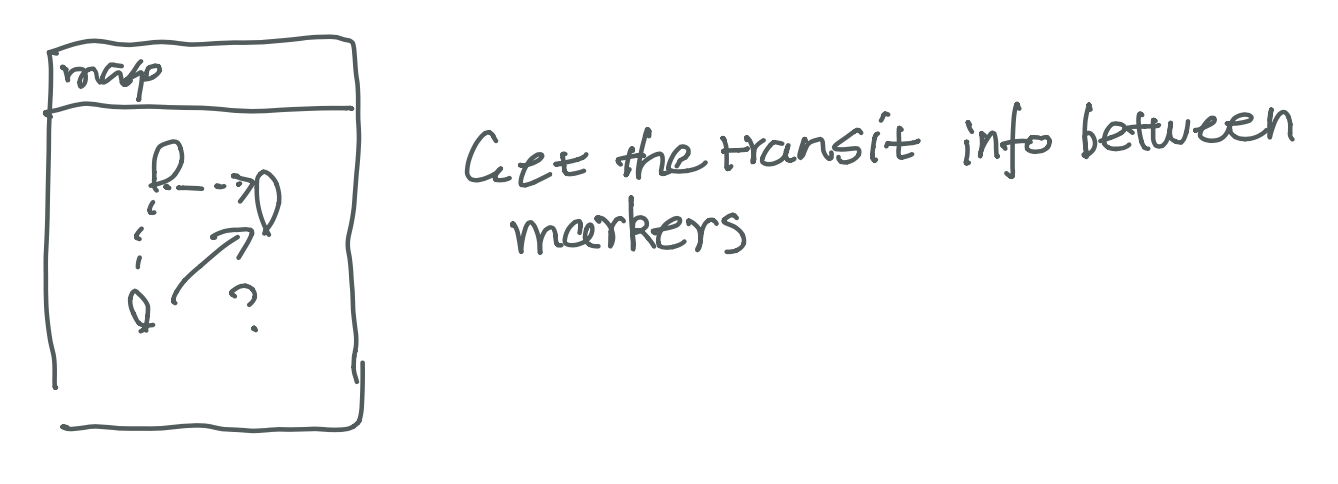 map
Get the transit info between
markers
?